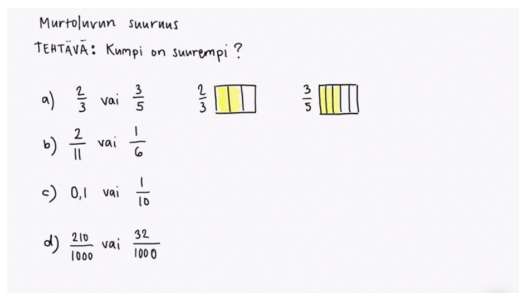 Murtoluvun suuruus
TEHTÄVÄ: Kumpi on suurempi?
a) 2/3 vai 3/5 2/3 3/5
b) 2/11 vai 1/6
c) 0,1 vai 1/10
d) 210/1000 vai 32/1000